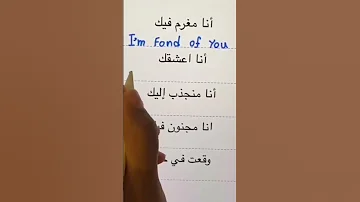 أنا مغرم فيك
I'm Fond of You
أنا اعشقك
أنا منجذب إليك
انا مجنون
وقعت في